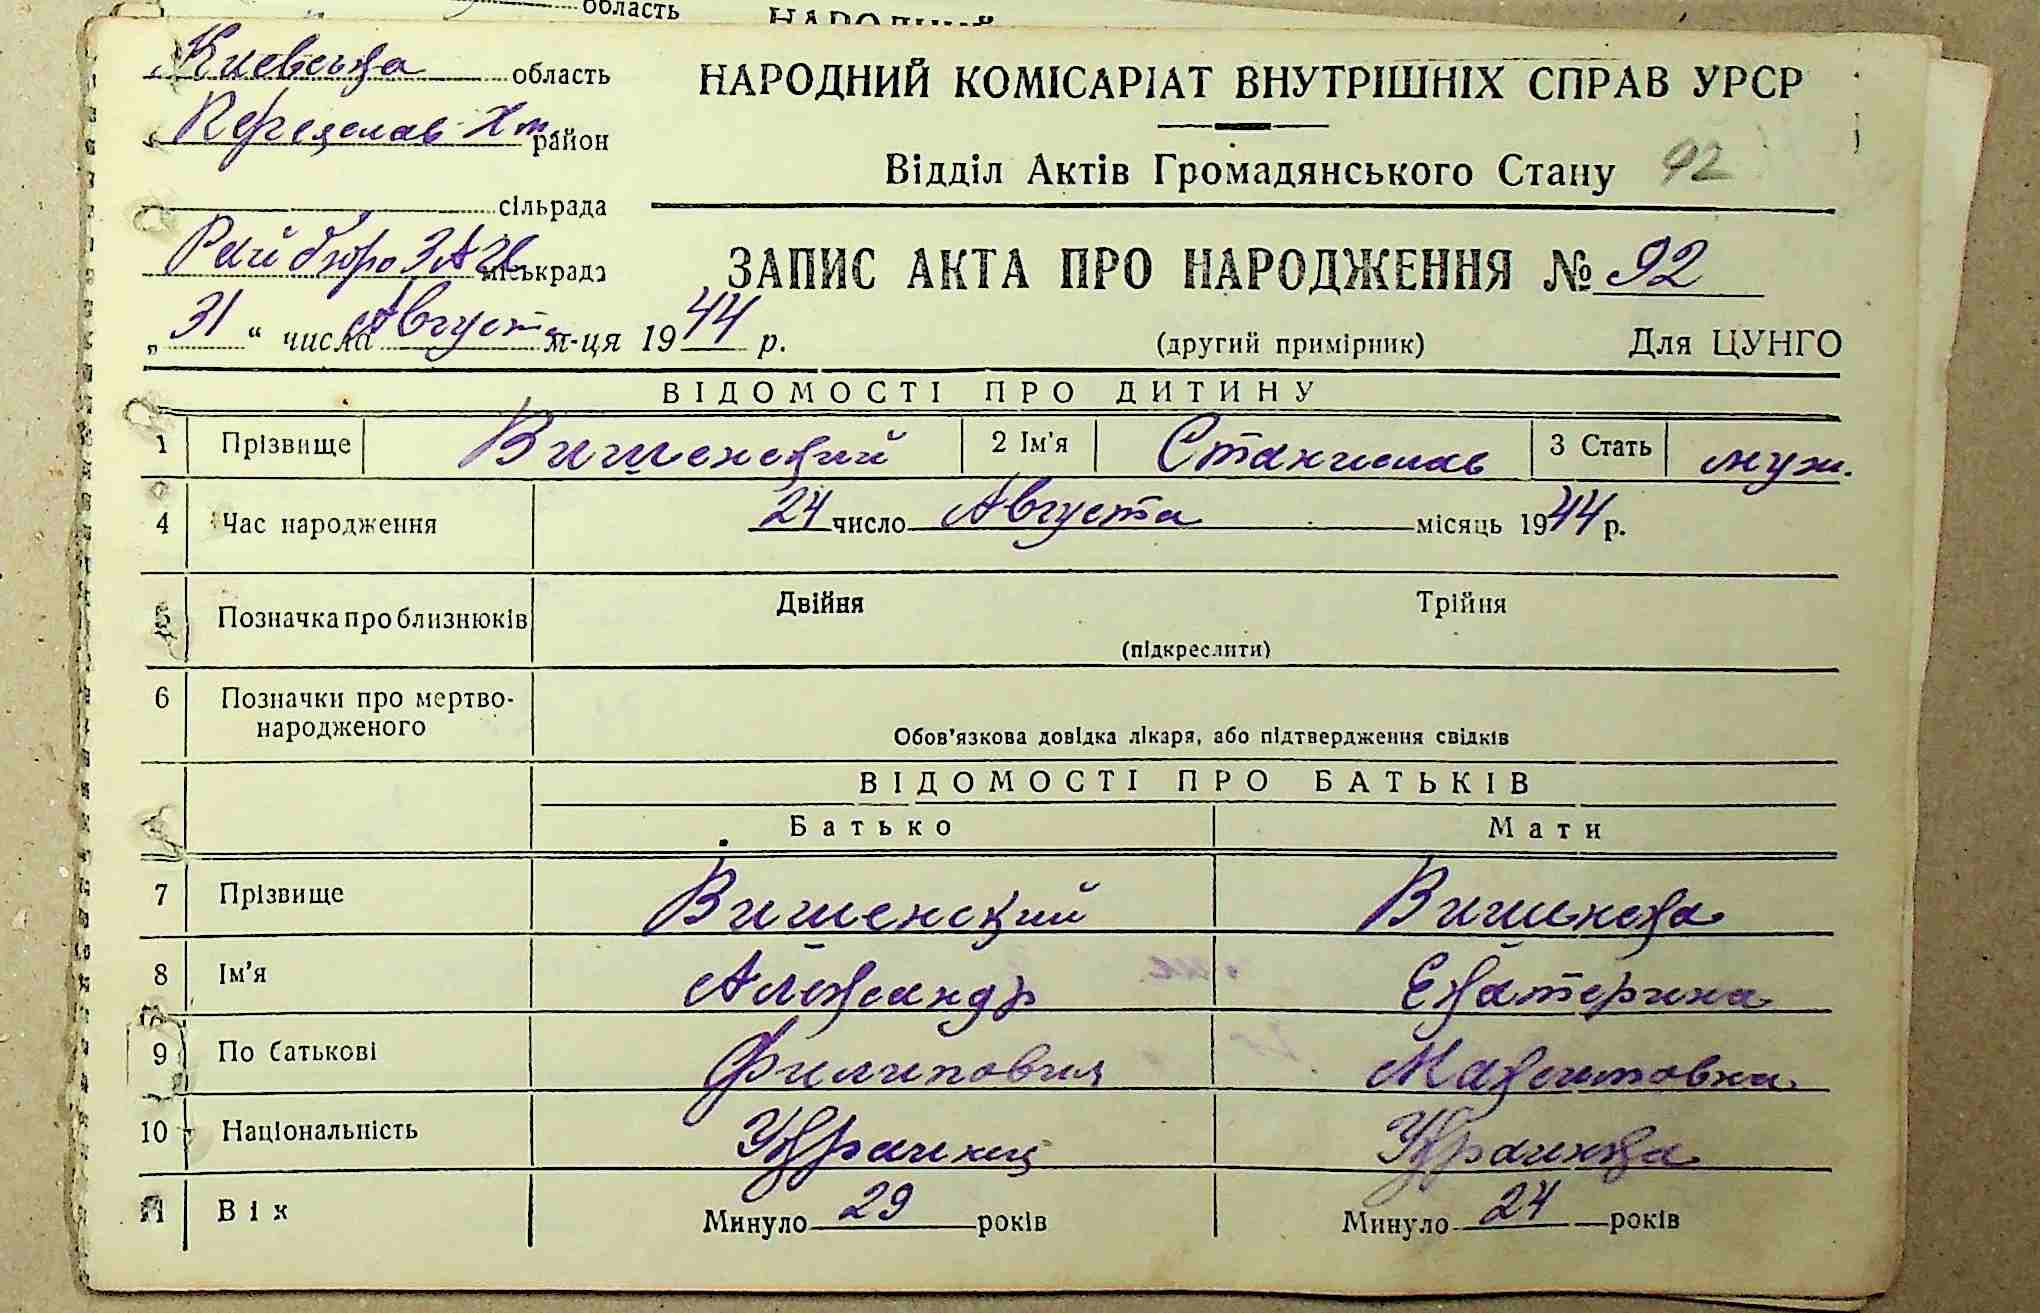 область НАРОДНИЙ
Киевська область
Переяслав-Хм. район
сільрада
Рай бюро ЗАГС міськрада
„31“ числа Августа м-ця 1944 р.
НАРОДНИЙ КОМІСАРІАТ ВНУТРІШНІХ СПРАВ УРСР
Відділ Актів Громадянського Стану 92
ЗАПИС АКТА ПРО НАРОДЖЕННЯ № 92
(другий примірник) Для ЦУНГО
ВІДОМОСТІ ПРО ДИТИНУ
1 Прізвище Вишенский 2 Ім'я Станислав 3 Стать муж.
4 Час народження 24 число Августа місяць 1944 р.
5 Позначка про близнюків Двійня Трійня
(підкреслити)
6 Позначки про мертво-
народженого
Обов'язкова довідка лікаря, або підтвердження свідків
ВІДОМОСТІ ПРО БАТЬКІВ
Батько Мати
7 Прізвище Вишенский Вишенска
8 Ім'я Александр Екатерина
9 По батькові Филипович
10 Національність Украинец Украинка
11 Вік Минуло 29 років Минуло 24 років